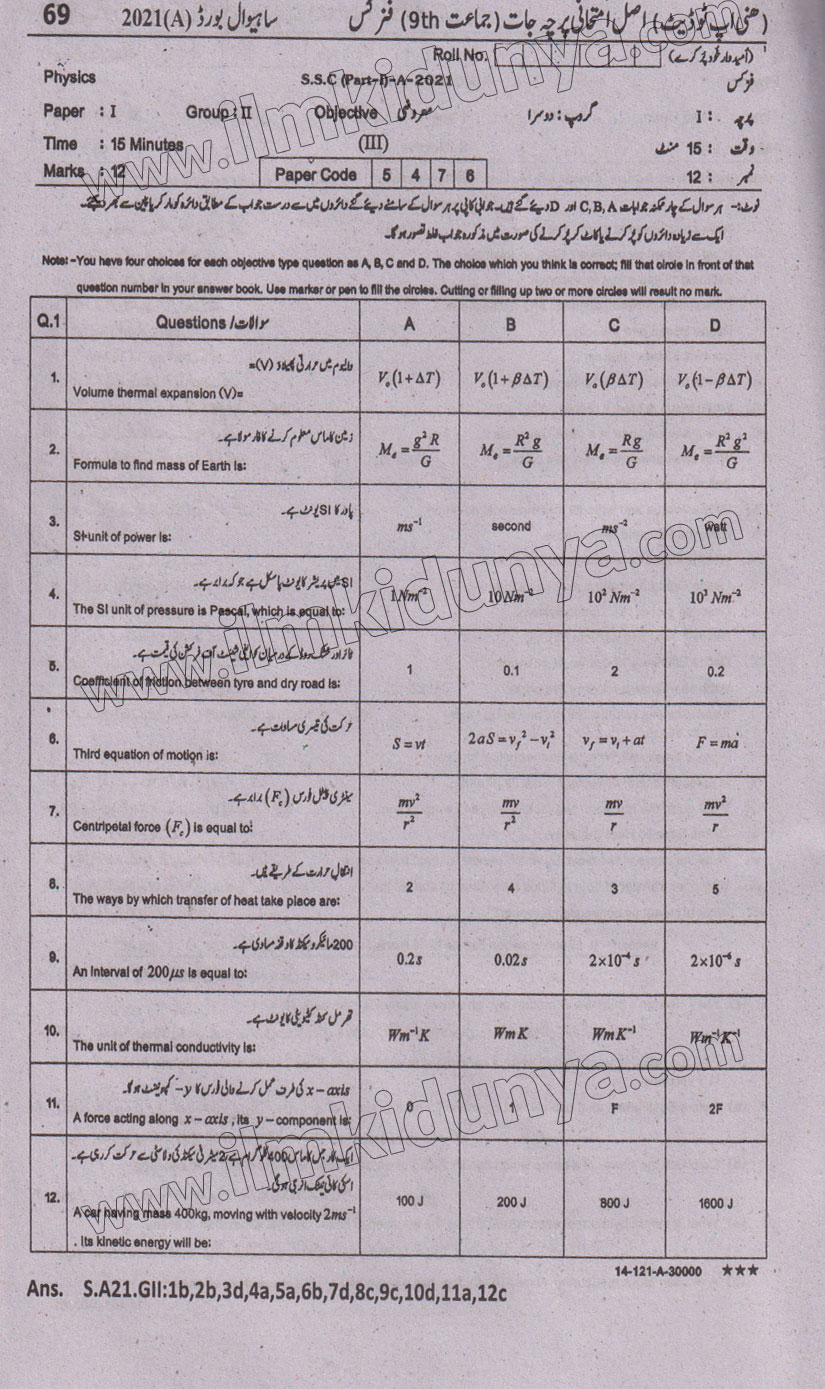 69
ساہیوال بورڈ 2021(A)
(ھنی اپ ٹو ڈیٹ) اصل امتحانی پرچہ جات (جماعت 9th) فزکس
Roll No.
(امیدوار خود پُر کرے)
Physics S.S.C (Part-I)-A-2021 فزکس
Paper : I Group : II Objective معروضی گروپ : دوسرا پرچہ : I
Time : 15 Minutes (III) وقت : 15 منٹ
Marks : 12 Paper Code 5 4 7 6 نمبر : 12
نوٹ:- ہر سوال کے چار ممکنہ جوابات C, B, A اور D دیئے گئے ہیں۔ جوابی کاپی پر ہر سوال کے سامنے دیئے گئے دائروں میں سے درست جواب کے مطابق دائرہ کو مارکر یا پین سے بھر دیجئے۔
ایک سے زیادہ دائروں کو پُر کرنے یا کاٹ کر پُر کرنے کی صورت میں مذکورہ جواب غلط تصور ہو گا۔
Note:-You have four choices for each objective type question as A, B, C and D. The choice which you think is correct; fill that circle in front of that
question number in your answer book. Use marker or pen to fill the circles. Cutting or filling up two or more circles will result no mark.
Q.1 Questions/سوالات A B C D
والیوم میں حرارتی پھیلاؤ (V)=
1. Volume thermal expansion (V)= V₀(1+ΔT) V₀(1+βΔT) V₀(βΔT) V₀(1−βΔT)
زمین کا ماس معلوم کرنے کا فارمولا ہے۔
2. Formula to find mass of Earth is: Mₑ = g²R/G Mₑ = R²g/G Mₑ = Rg/G Mₑ = R²g²/G
پاور کا SI یونٹ ہے۔
3. SI unit of power is: ms⁻¹ second ms⁻² watt
SI میں پریشر کا یونٹ پاسکل ہے جو کہ برابر ہے۔
4. The SI unit of pressure is Pascal, which is equal to: 1Nm⁻² 10Nm⁻² 10² Nm⁻² 10³ Nm⁻²
ٹائر اور خشک روڈ کے درمیان کوایفی شینٹ آف فرکشن کی قیمت ہے۔
5. Coefficient of friction between tyre and dry road is: 1 0.1 2 0.2
حرکت کی تیسری مساوات ہے۔
6. Third equation of motion is: S = vt 2aS = v_f² − v_i² v_f = v_i + at F = ma
سینٹری پیٹل فورس (F_c) برابر ہے۔
7. Centripetal force (F_c) is equal to: mv²/r² mv/r² mv/r mv²/r
انتقال حرارت کے طریقے ہیں۔
8. The ways by which transfer of heat take place are: 2 4 3 5
200 مائیکرو سیکنڈ کا وقفہ مساوی ہے۔
9. An interval of 200μs is equal to: 0.2s 0.02s 2×10⁻⁴ s 2×10⁻⁶ s
تھرمل کنڈکٹیویٹی کا یونٹ ہے۔
10. The unit of thermal conductivity is: Wm⁻¹K WmK WmK⁻¹ Wm⁻¹K⁻¹
x−axis کی طرف عمل کرنے والی فورس کا y− کمپوننٹ ہو گا۔
11. A force acting along x−axis, its y−component is: 0 1 F 2F
ایک کار جس کا ماس 400 کلوگرام ہے 2 میٹر فی سیکنڈ کی ولاسٹی سے حرکت کر رہی ہے۔
اسکی کائی نیٹک انرجی ہو گی۔
12. A car having mass 400kg, moving with velocity 2ms⁻¹ 100 J 200 J 800 J 1600 J
. Its kinetic energy will be:
14-121-A-30000 ★★★
Ans. S.A21.GII:1b,2b,3d,4a,5a,6b,7d,8c,9c,10d,11a,12c
www.ilmkidunya.com
www.ilmkidunya.com
www.ilmkidunya.com